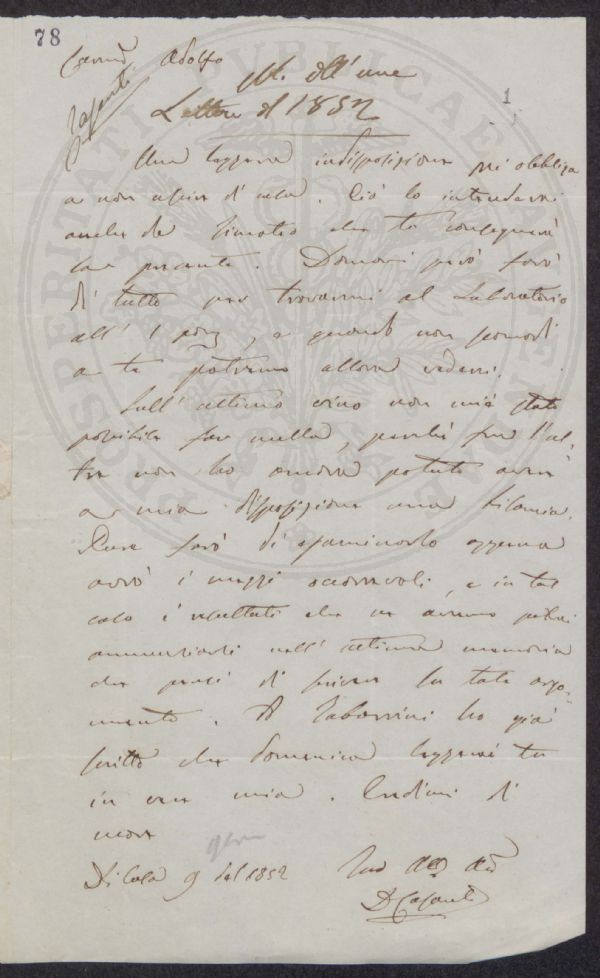 78
Adolfo
Lettere del 1852
1
Una leggera indisposizione mi obbliga
a non uscir di casa. Ciò lo intenderai
anche da Timoteo che ti consegnerà
la presente. Domani però farò
di tutto per trovarmi al Laboratorio
all' 1 pom, e quando non scomodi
a te potremo allora vederci.
Sull' ottimo vino non mi è stato
possibile far nulla, perchè fra l'al
tre non ho ancora potuto avere
a mia disposizione una bilancia.
Pure farò di esaminarlo appena
avrò i mezzi occorrevoli, e in tal
caso i resultati che se avremo potrai
annunziarli nell' ottima memoria
che pensi di scriver su tale argo-
mento. A Tabarrini ho già
scritto che domenica leggerai tu
in vece mia. Credimi di
nuovo
genn
Di Casa 9 del 1852
Tuo